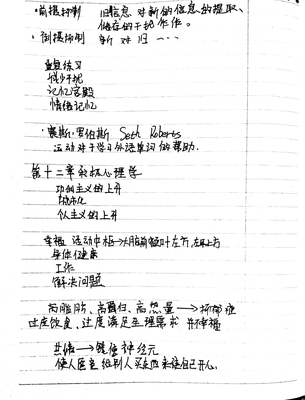 ·前摄抑制 旧信息 对新的信息的提取、
储存的干扰作用。
·倒摄抑制 新 对 旧 ···
重复练习
减少干扰
记忆宫殿
情绪记忆
·赛斯·罗伯斯 Seth Roberts
运动对于学习外语单词的帮助.
第十二章 积极心理学
功利主义的上升
城市化
个人主义的上升
幸福 运动中枢→大脑前额叶左前,左眼上方
身体健康
工作
解决问题
高脂肪、高蛋白、高热量→抑郁症
过度饮食,过度满足生理需求 非幸福
共情→镜像神经元
使人愿意给别人买东西来使自己开心。